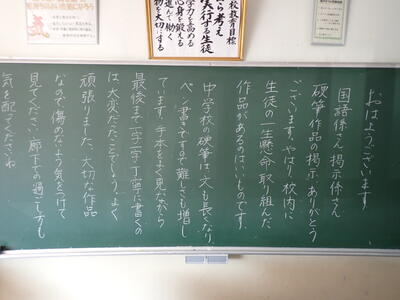 校教育目標
ら考え
実行する生徒
学力を高める
心身を鍛える
進んで働く
物を大切にする
おはようございます
国語係さん、掲示係さん
硬筆作品の掲示、ありがとう
ございます。やはり、校内に
生徒の一生懸命取り組んだ
作品があるのはいいものです。
中学校の硬筆は、文も長くなり、
ペン書きですので難しさも増し
ています。手本をよく見ながら
最後まで一字一字、丁寧に書くの
は、大変だったことでしょう。よく
頑張りました。大切な作品
なので傷のないよう気をつけて
見てください。廊下の過ごし方も
気を配ってくださいね